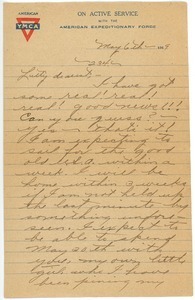 AMERICAN
YMCA
ON ACTIVE SERVICE
WITH THE
AMERICAN EXPEDITIONARY FORCE
May 6th 1919
I have got
some real! real!
real! good news!!!
Can you guess?
Yes - that's it!
I am expecting to
sail for the good
old U.S.A. within a
week. I will be
home within 3 weeks
if I am not held up
the last minute by
something unfore-
seen. I expect to
be able to spend
May 30th with
you, my own little
girl who I have
been pining